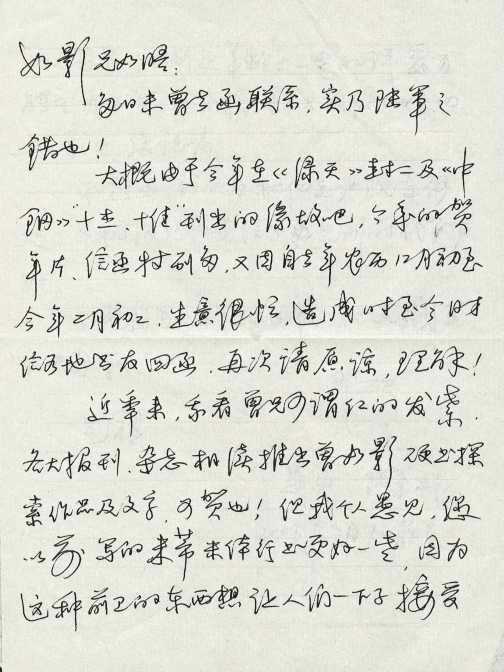 如影兄如晤：
多日未曾去函联系，实乃陆军之
错也！
大概由于今年在《绿天》封二及《中
钢》“十杰、十佳”刊出的缘故吧，今年的贺
年片、信函特别多，又因自去年农历12月初至
今年二月初二，生意很忙，造成时至今日才
给各地书友回函，再次请原谅，理解！
近年来，我看曾兄可谓红的发紫，
各大报刊、杂志相读推出曾如影硬书探
索作品及文字，可贺也！但我个人愚见，您
以前写的米芾米体行书更好一些，因为
这种前卫的东西想让人们一下子接受